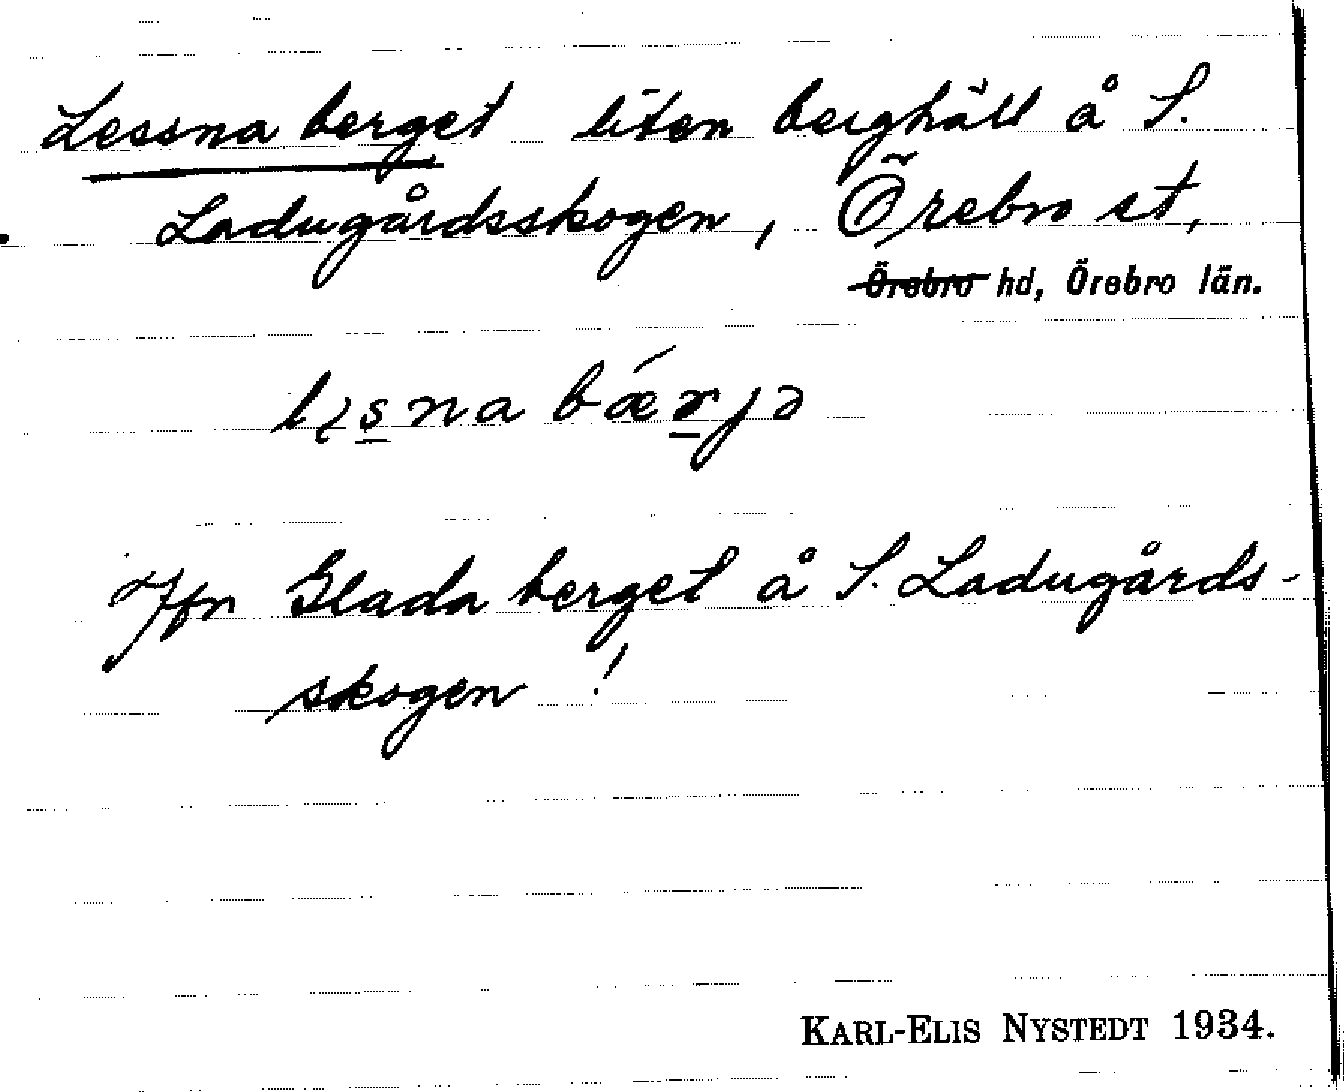 Lessna berget liten berghäll å S.
Ladugårdsskogen, Örebro st,
Örebro hd, Örebro län.
bærjə
Jfr Glada berget å S. Ladugårds-
skogen!
KARL-ELIS NYSTEDT 1934.